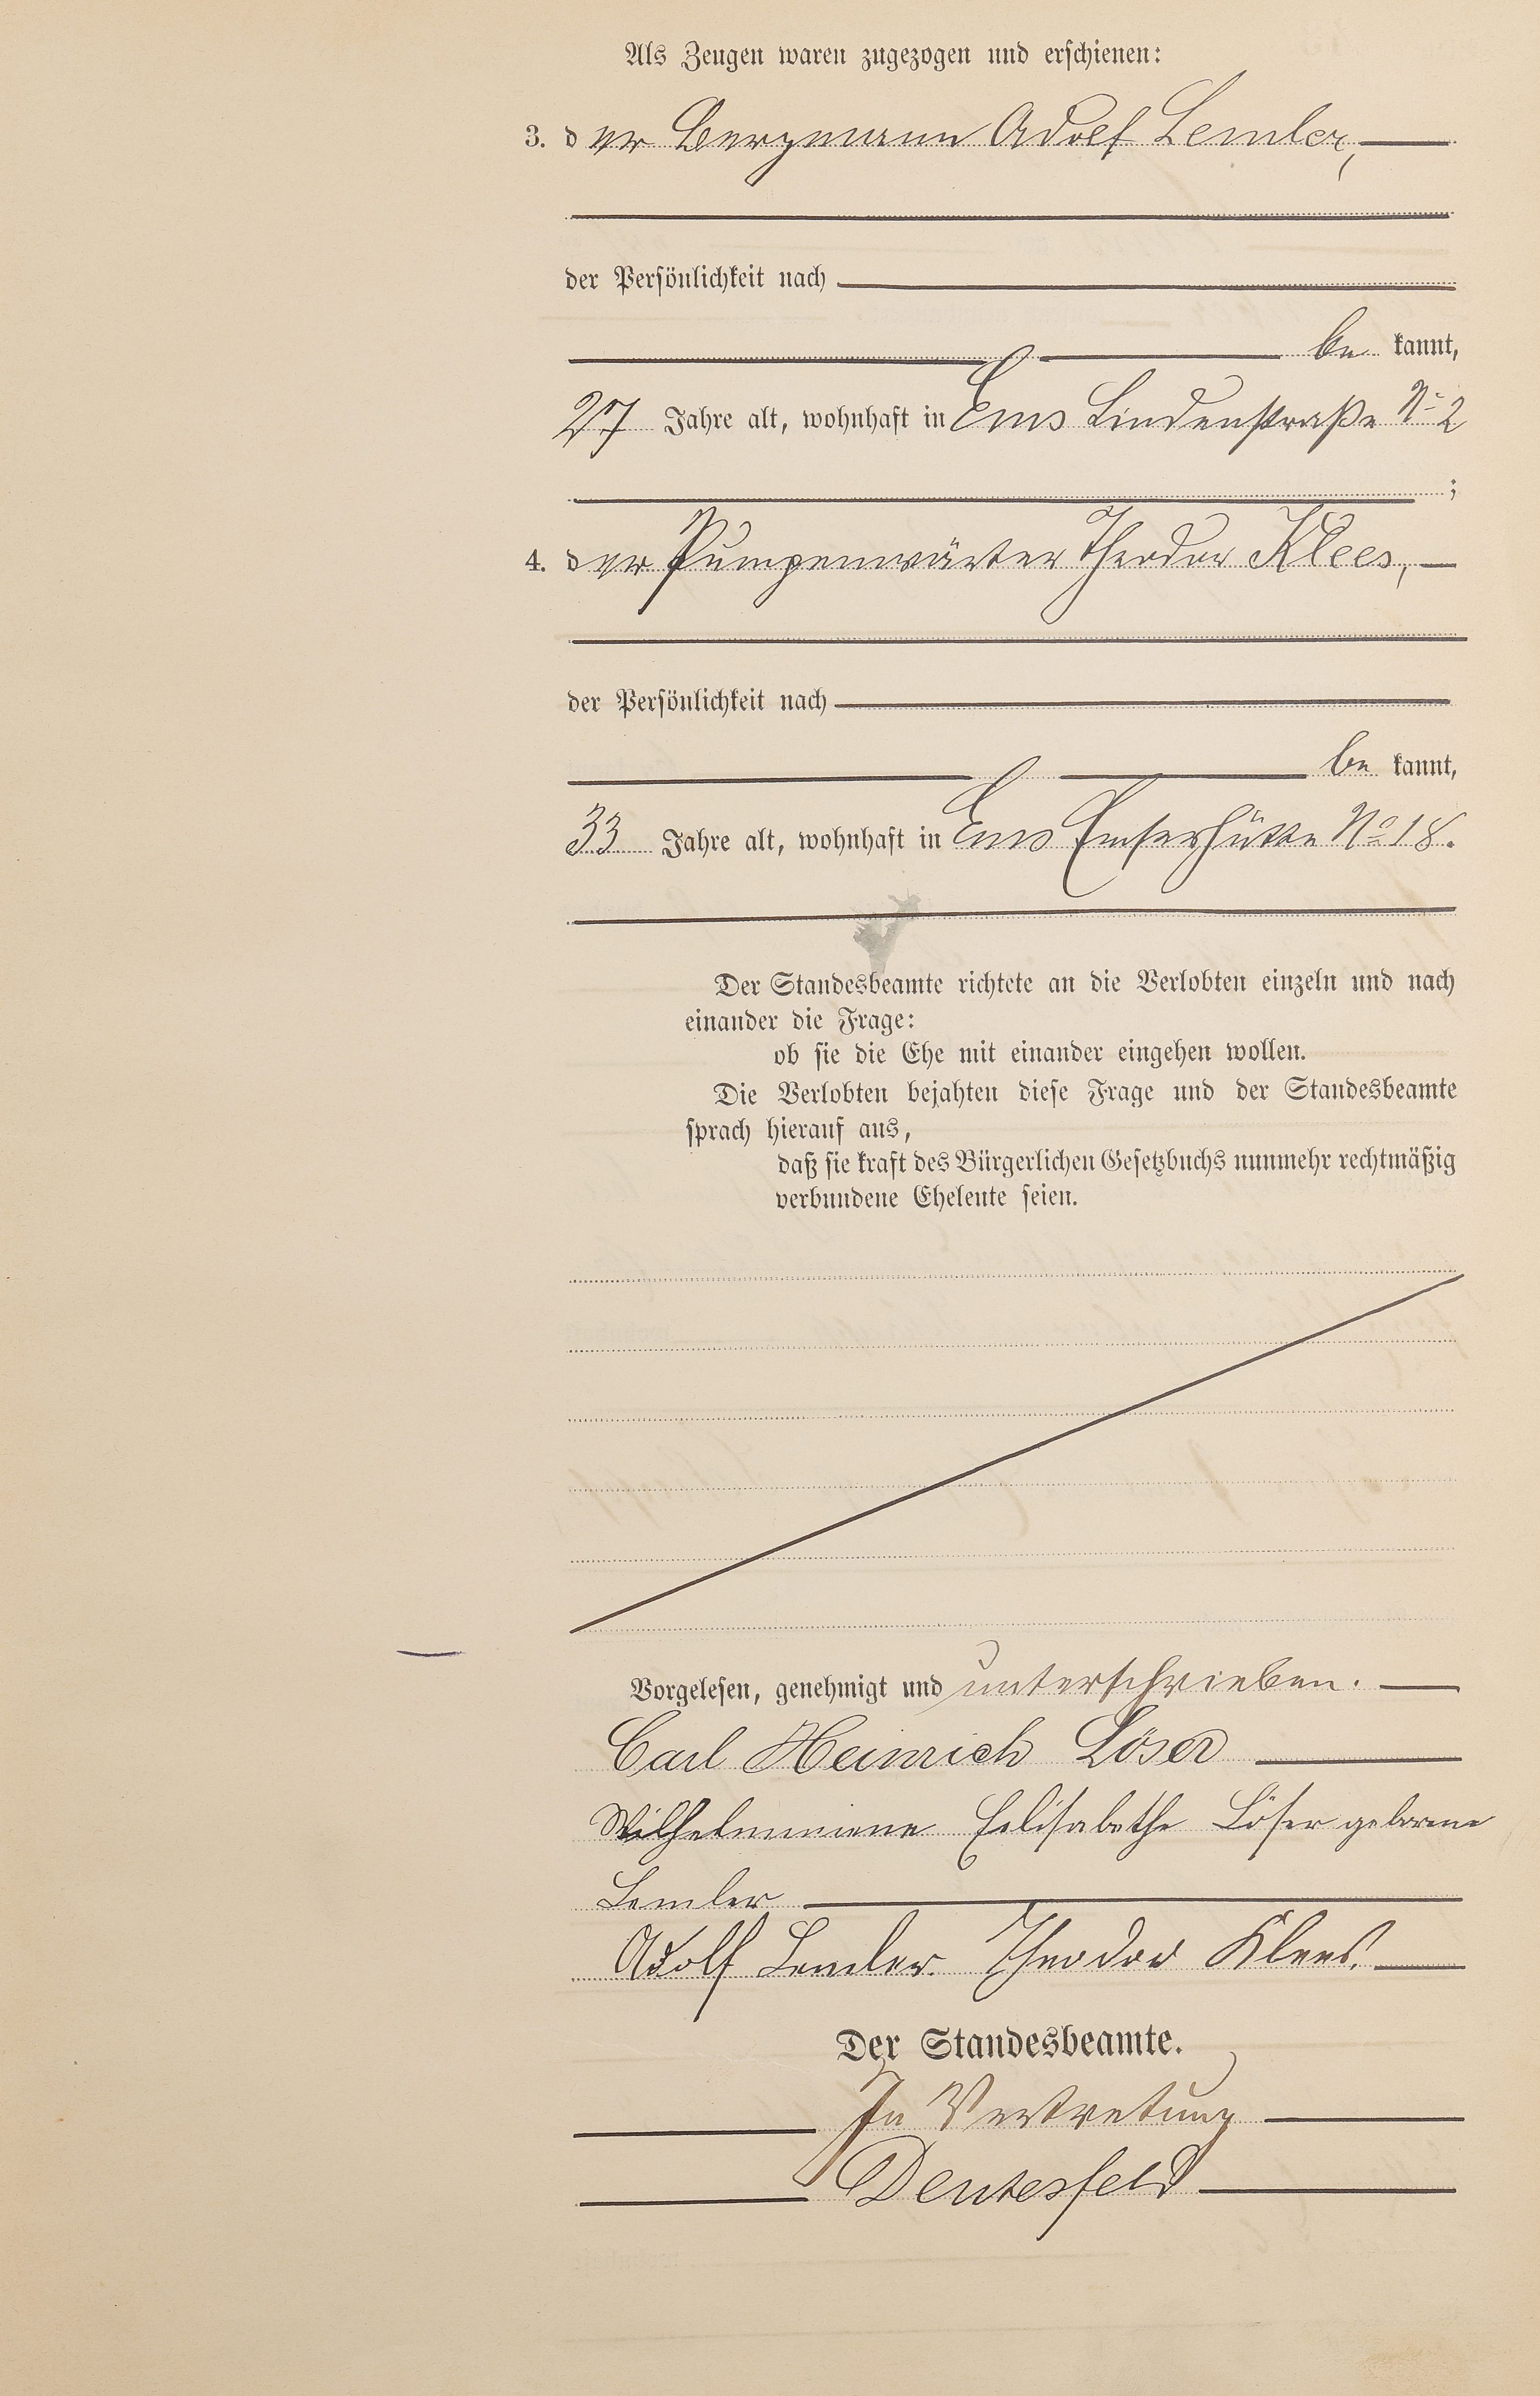 Als Zeugen waren zugezogen und erschienen:
3. der Bergmann Adolf Lemler,
der Persönlichkeit nach
be kannt,
27 Jahre alt, wohnhaft in Ems Lindenstraße No 2
;
4. der Pumpenwärter Theodor Klees,
der Persönlichkeit nach
be kannt,
33 Jahre alt, wohnhaft in Ems Emserhütte No 18.
Der Standesbeamte richtete an die Verlobten einzeln und nach
einander die Frage:
ob sie die Ehe mit einander eingehen wollen.
Die Verlobten bejahten diese Frage und der Standesbeamte
sprach hierauf aus,
daß sie kraft des Bürgerlichen Gesetzbuchs nunmehr rechtmäßig
verbundene Eheleute seien.
Vorgelesen, genehmigt und unterschrieben.
Carl Heinrich Löser
Wilhelmmiene Eelisabethe Löser geborene
Lemler
Adolf Lemler. Theodor Klees.
Der Standesbeamte.
In Vertretung
Deutesfeld